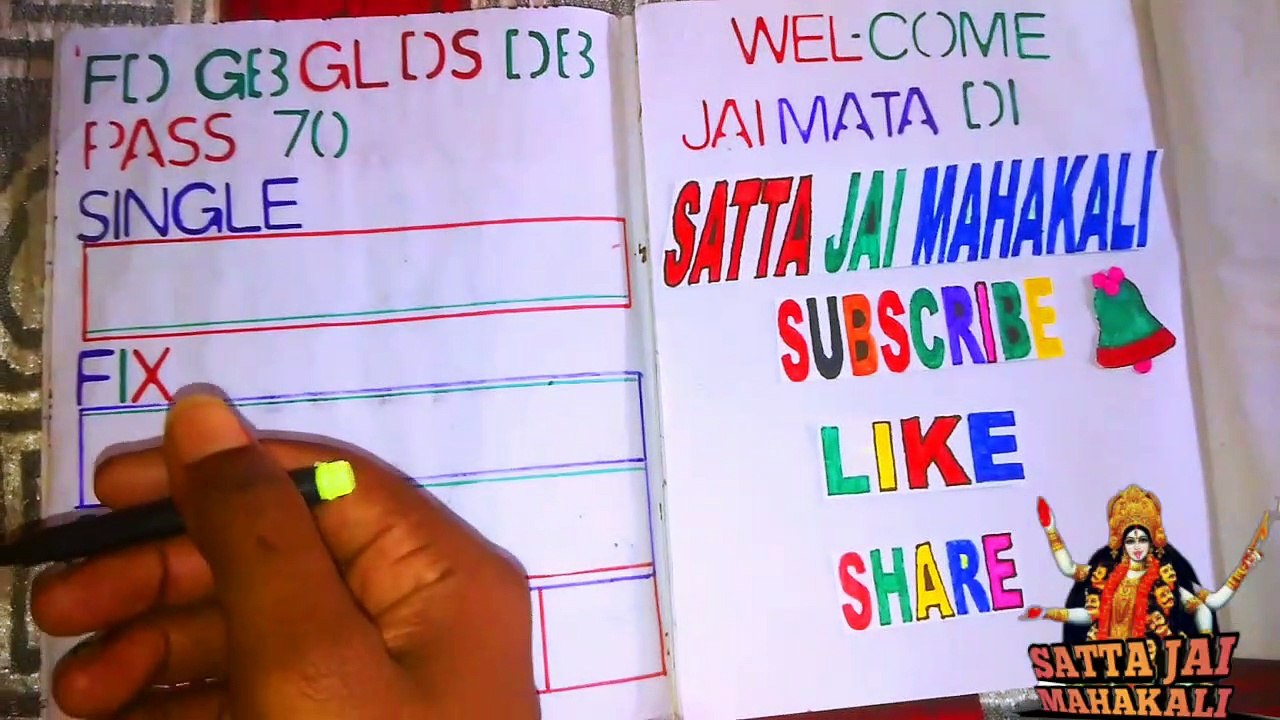 FD GB GL DS DB
PASS 70
SINGLE
FIX
WEL-COME
JAI MATA DI
SATTA JAI MAHAKALI
SUBSCRIBE
LIKE
SHARE
SATTA JAI
MAHAKALI